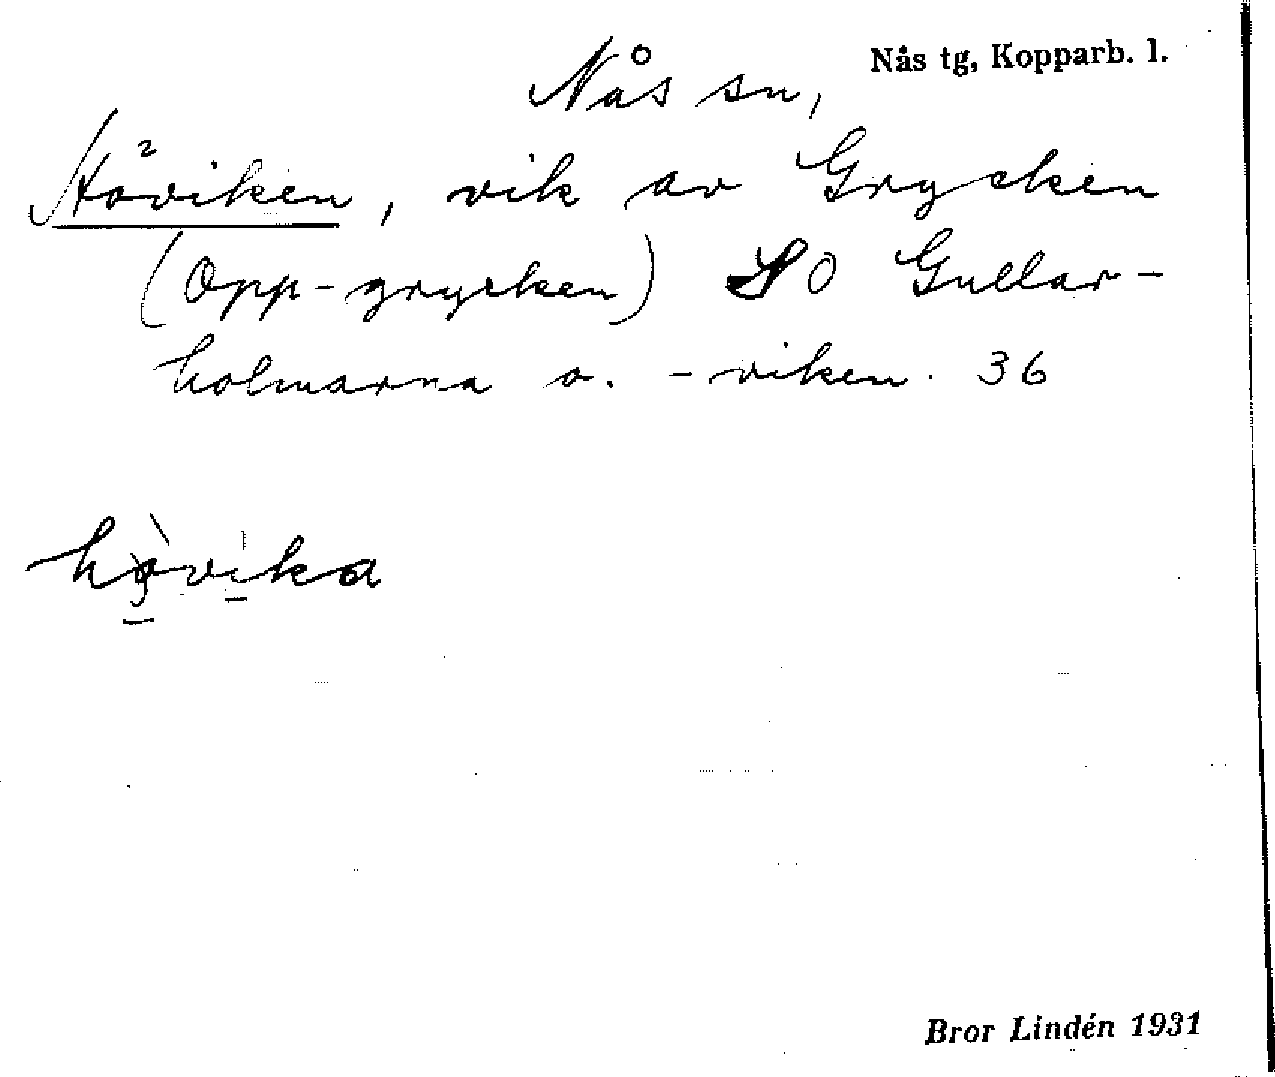 Nås tg, Kopparb. l.
Nås sn,
Höviken, vik av Grycken
(Opp-grycken) SO Gullar-
holmarna o. -viken. 36
Bror Lindén 1931